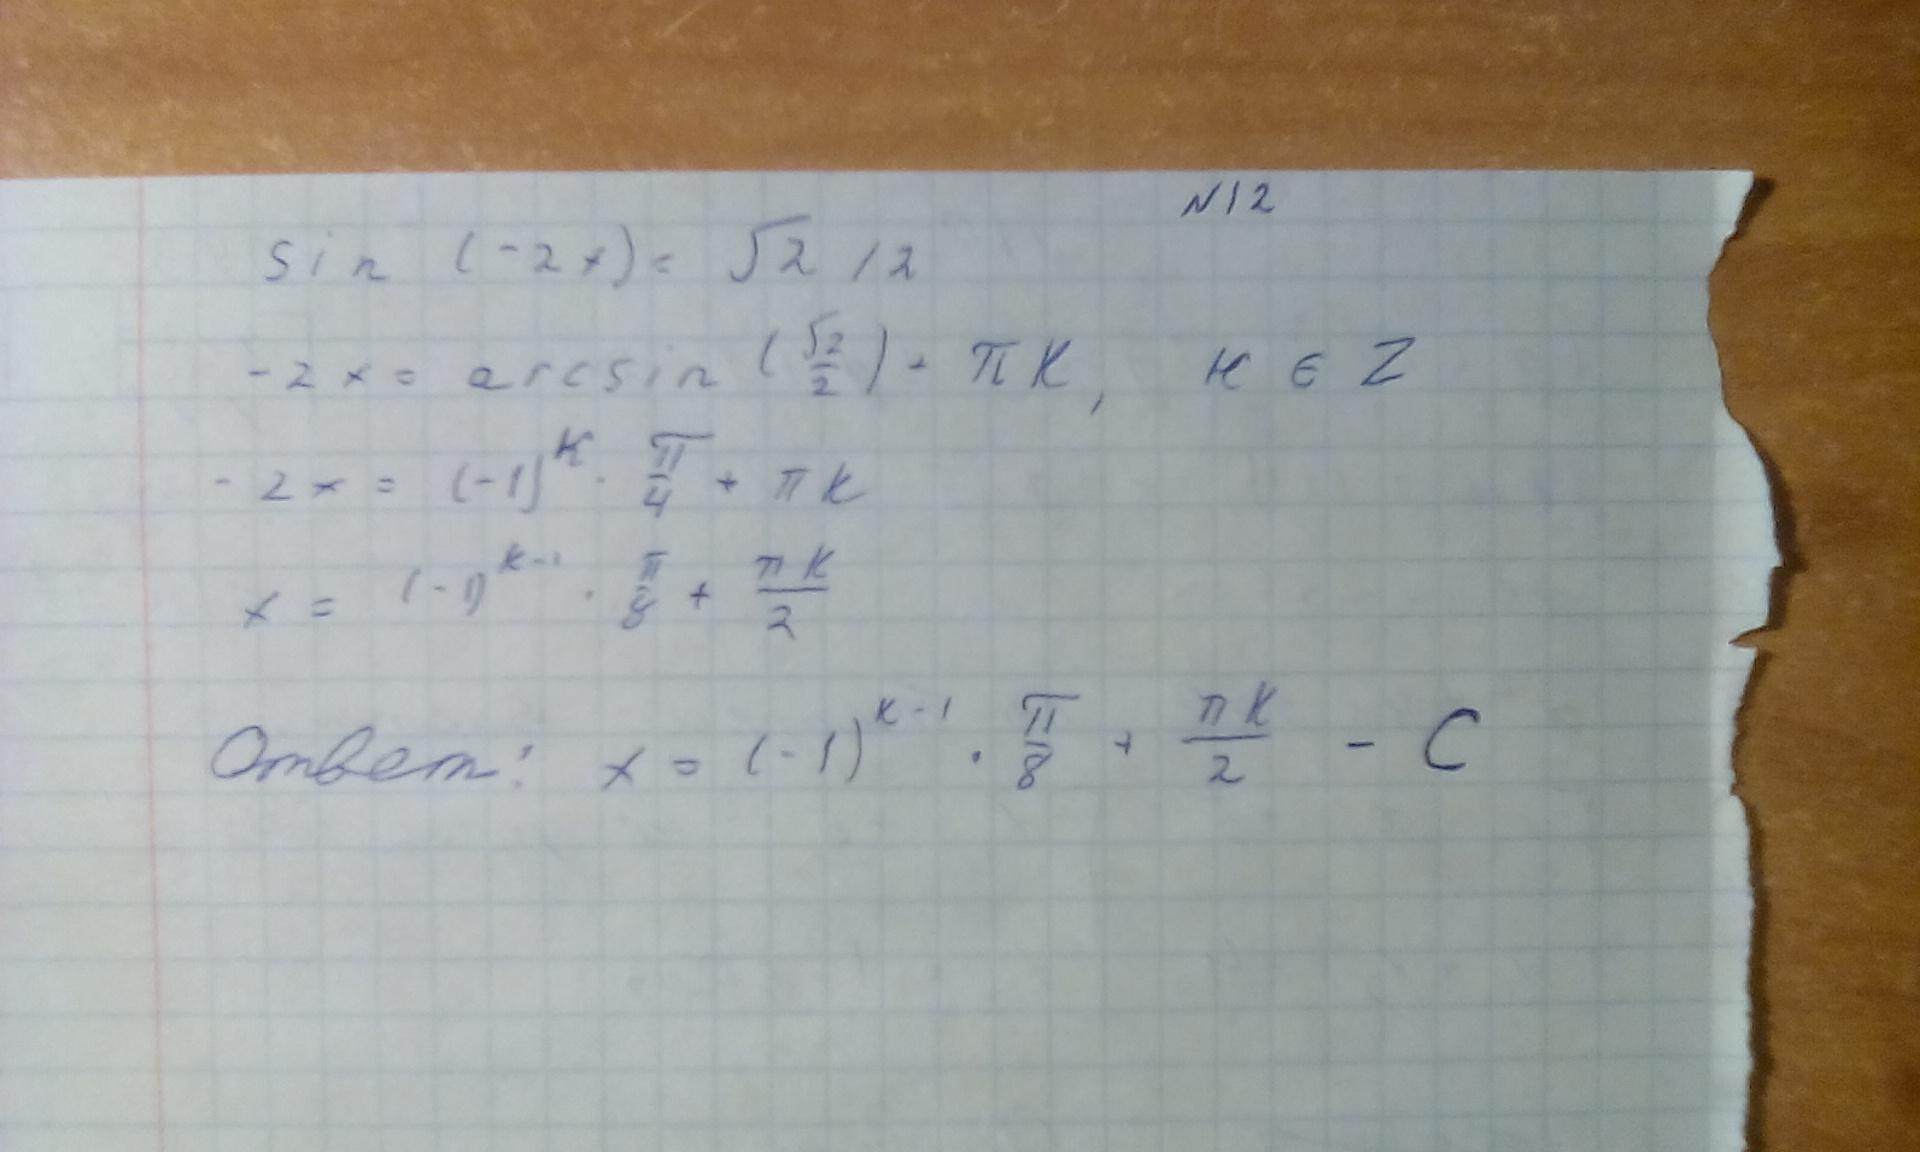 N12
sin (-2x) = √2 / 2
-2x = arcsin (√2/2) + πk, к ∈ Z
-2x = (-1)^k · π/4 + πk
x = (-1)^(k-1) · π/8 + πk/2
Ответ: x = (-1)^(k-1) · π/8 + πk/2 - C